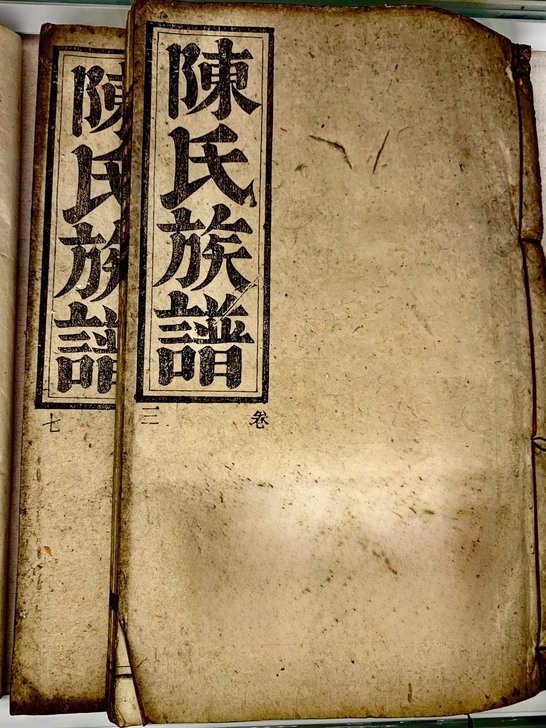 陳氏族譜
卷三
陳氏族譜
七